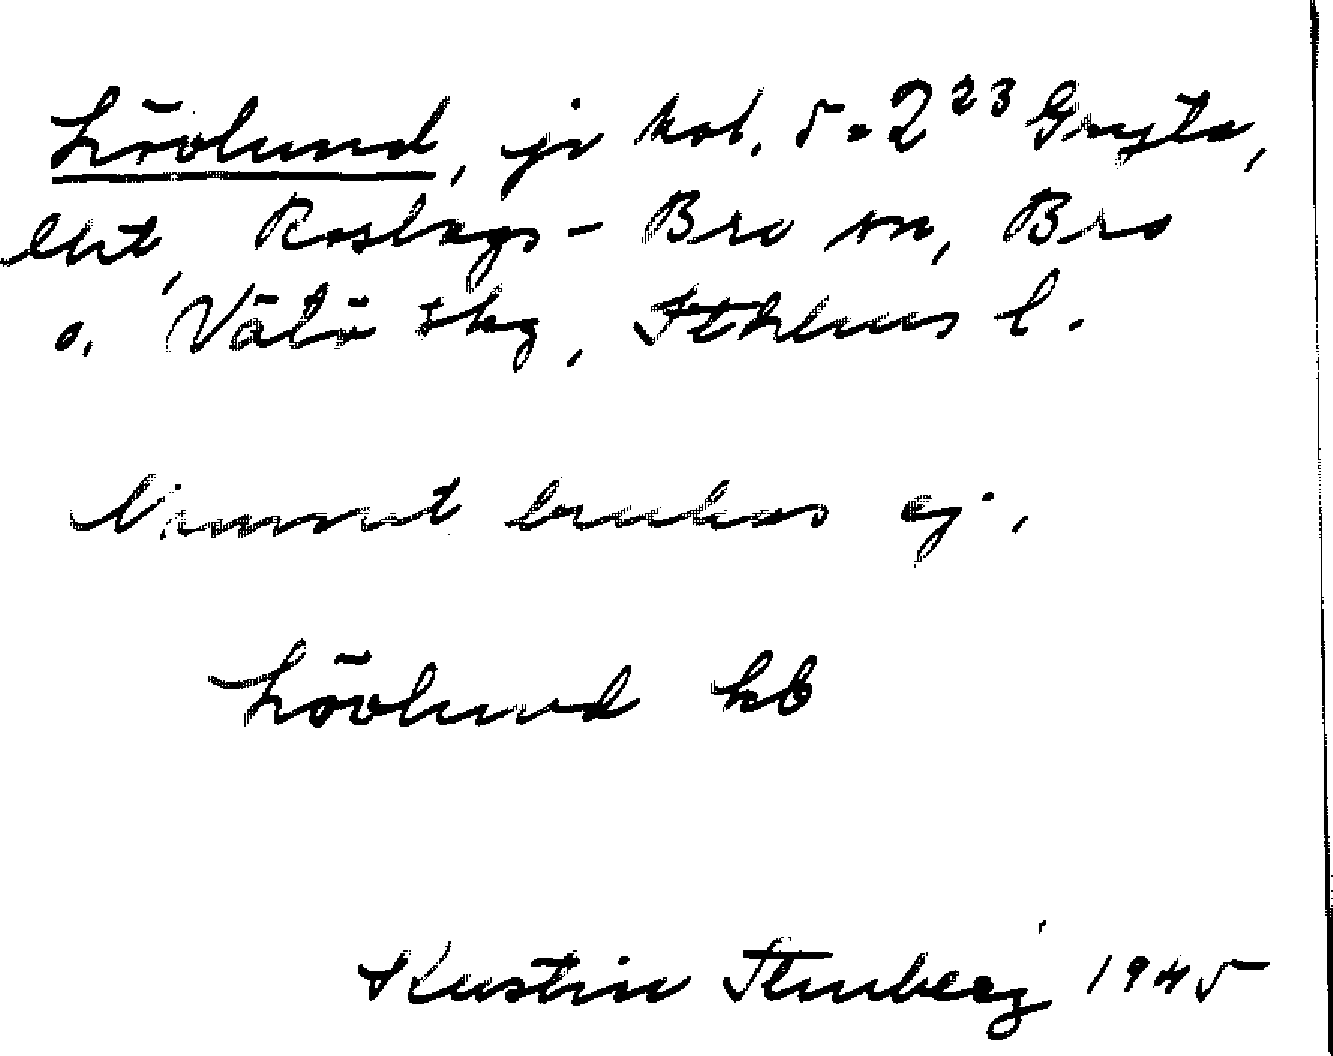 Lövlund, jr kol. 5. 2²³ Gryta,
lht, Roslags-Bro sn, Bro
o. Vätö skg, Sthlms l.
Namnet brukas ej.
Lövlund kb
Kerstin Stenberg 1945